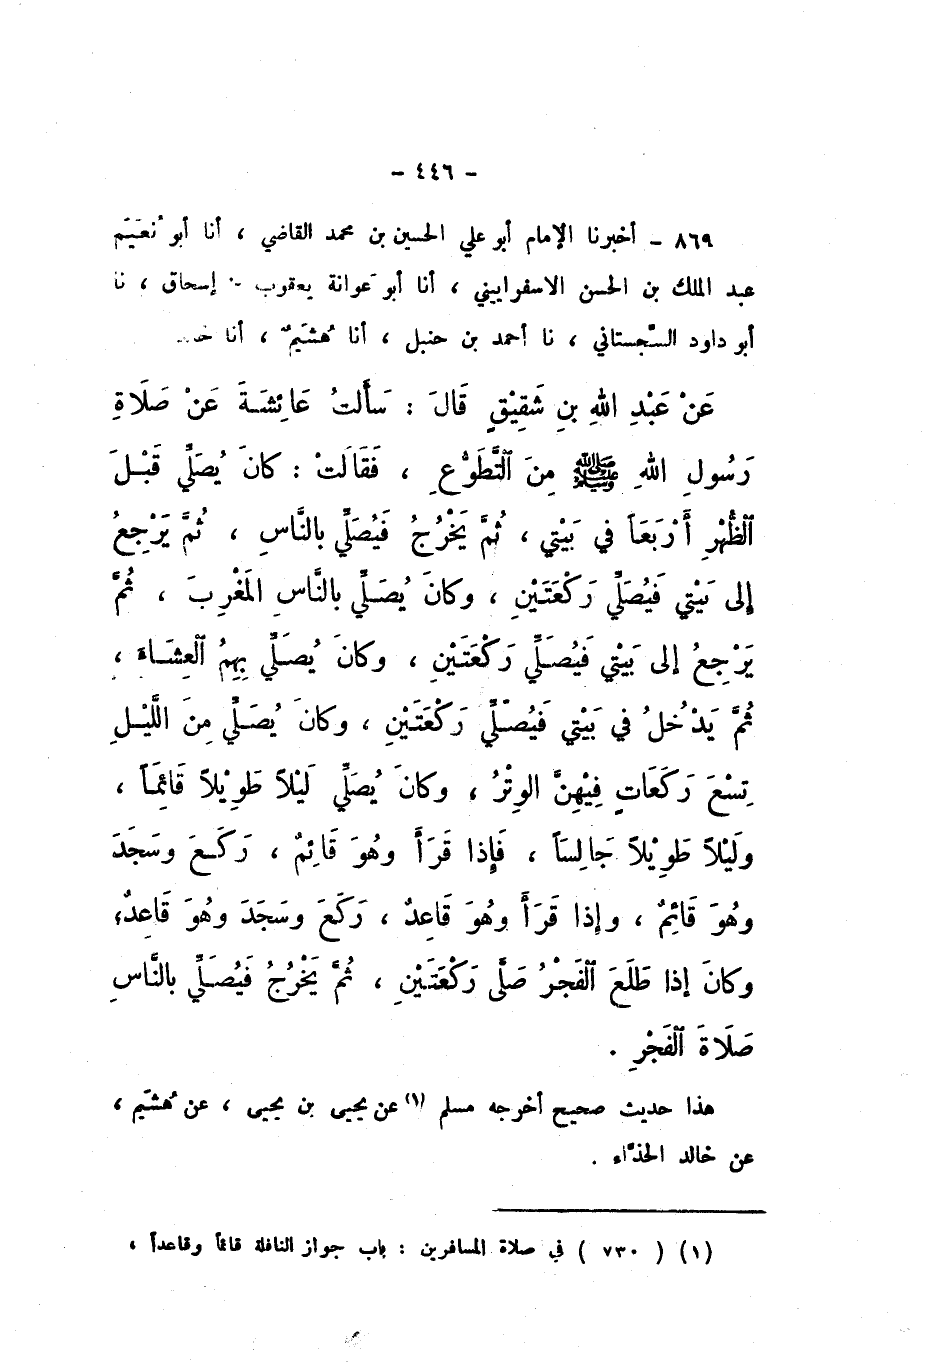 - ٤٤٦ -
٨٦٩ - أخبرنا الإمام أبو علي الحسين بن محمد القاضي ، أنا أبو نُعَيْم
عبد الملك بن الحسن الاسفراييني ، أنا أبو عَوانة يعقوب إسحاق ، نا
أبو داود السِّجستاني ، نا أحمد بن حنبل ، أنا هُشَيمٌ ، أنا
عَنْ عَبْدِ اللهِ بنِ شَقِيْقٍ قَالَ : سَأَلتُ عَائِشَةَ عَنْ صَلَاةِ
رَسُولِ اللهِ ﷺ مِنَ ٱلتَّطَوُّعِ ، فَقَالَتْ : كانَ يُصَلِّي قَبْلَ
ٱلظُّهْرِ أَرْبَعَاً في بَيْتي ، ثُمَّ يَخْرُجُ فَيُصَلِّي بالنَّاسِ ، ثُمَّ يَرْجِعُ
إلى بَيْتي فَيُصَلِّي رَكْعَتَيْنِ ، وكانَ يُصَلِّي بالنَّاسِ المَغْرِبَ ، ثُمَّ
يَرْجِعُ إلى بَيْتي فَيُصَلِّي رَكْعَتَيْنِ ، وكانَ يُصَلِّي بِهِمُ ٱلعِشَاءَ ،
ثُمَّ يَدْخُلُ في بَيْتي فَيُصَلِّي رَكْعَتَيْنِ ، وكانَ يُصَلِّي مِنَ اللَّيْلِ
تِسْعَ رَكَعَاتٍ فِيْهِنَّ الوِتْرُ ، وكانَ يُصَلِّي لَيْلاً طَوِيْلاً قَائِمَاً ،
ولَيْلاً طَوِيْلاً جَالِسَاً ، فَإِذا قَرَأَ وهُوَ قَائِمٌ ، رَكَعَ وسَجَدَ
وهُوَ قَائِمٌ ، وإذا قَرَأَ وهُوَ قَاعِدٌ ، رَكَعَ وسَجَدَ وهُوَ قَاعِدٌ؛
وكانَ إذا طَلَعَ ٱلفَجْرُ صَلَّى رَكْعَتَيْنِ ، ثُمَّ يَخْرُجُ فَيُصَلِّي بالنَّاسِ
صَلَاةَ ٱلفَجْرِ .
هذا حديث صحيح أخرجه مسلم (١) عن يحيى بن يحيى ، عن هُشَيم ،
عن خالد الحذَّاء .
(١) ( ٧٣٠ ) في صلاة المسافرين : باب جواز النافلة قائماً وقاعداً ،